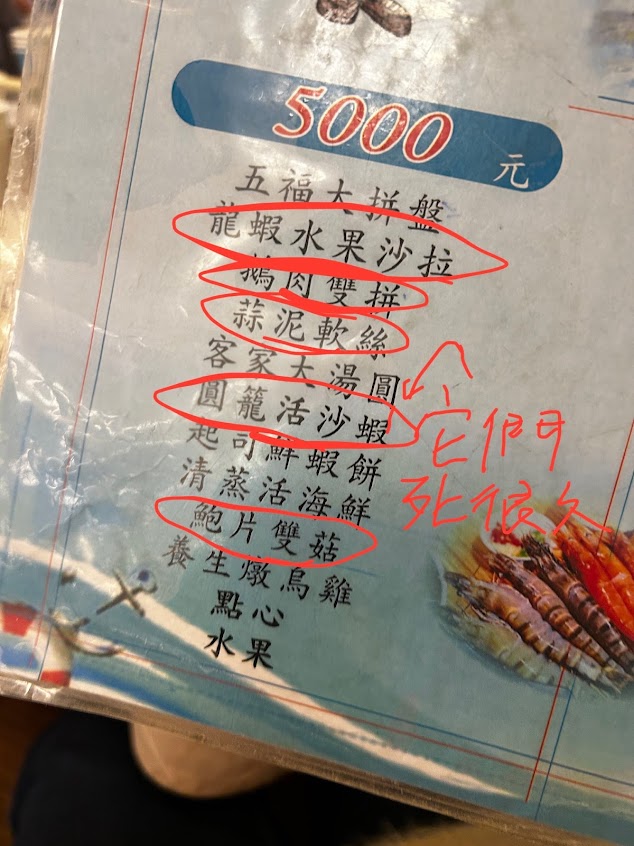 5000元
五福大拼盤
龍蝦水果沙拉
鵝肉雙拼
蒜泥軟絲
客家大湯圓
圓籠活沙蝦
起司鮮蝦餅
清蒸活海鮮
鮑片雙菇
養生燉烏雞
點心
水果
它們
死很久